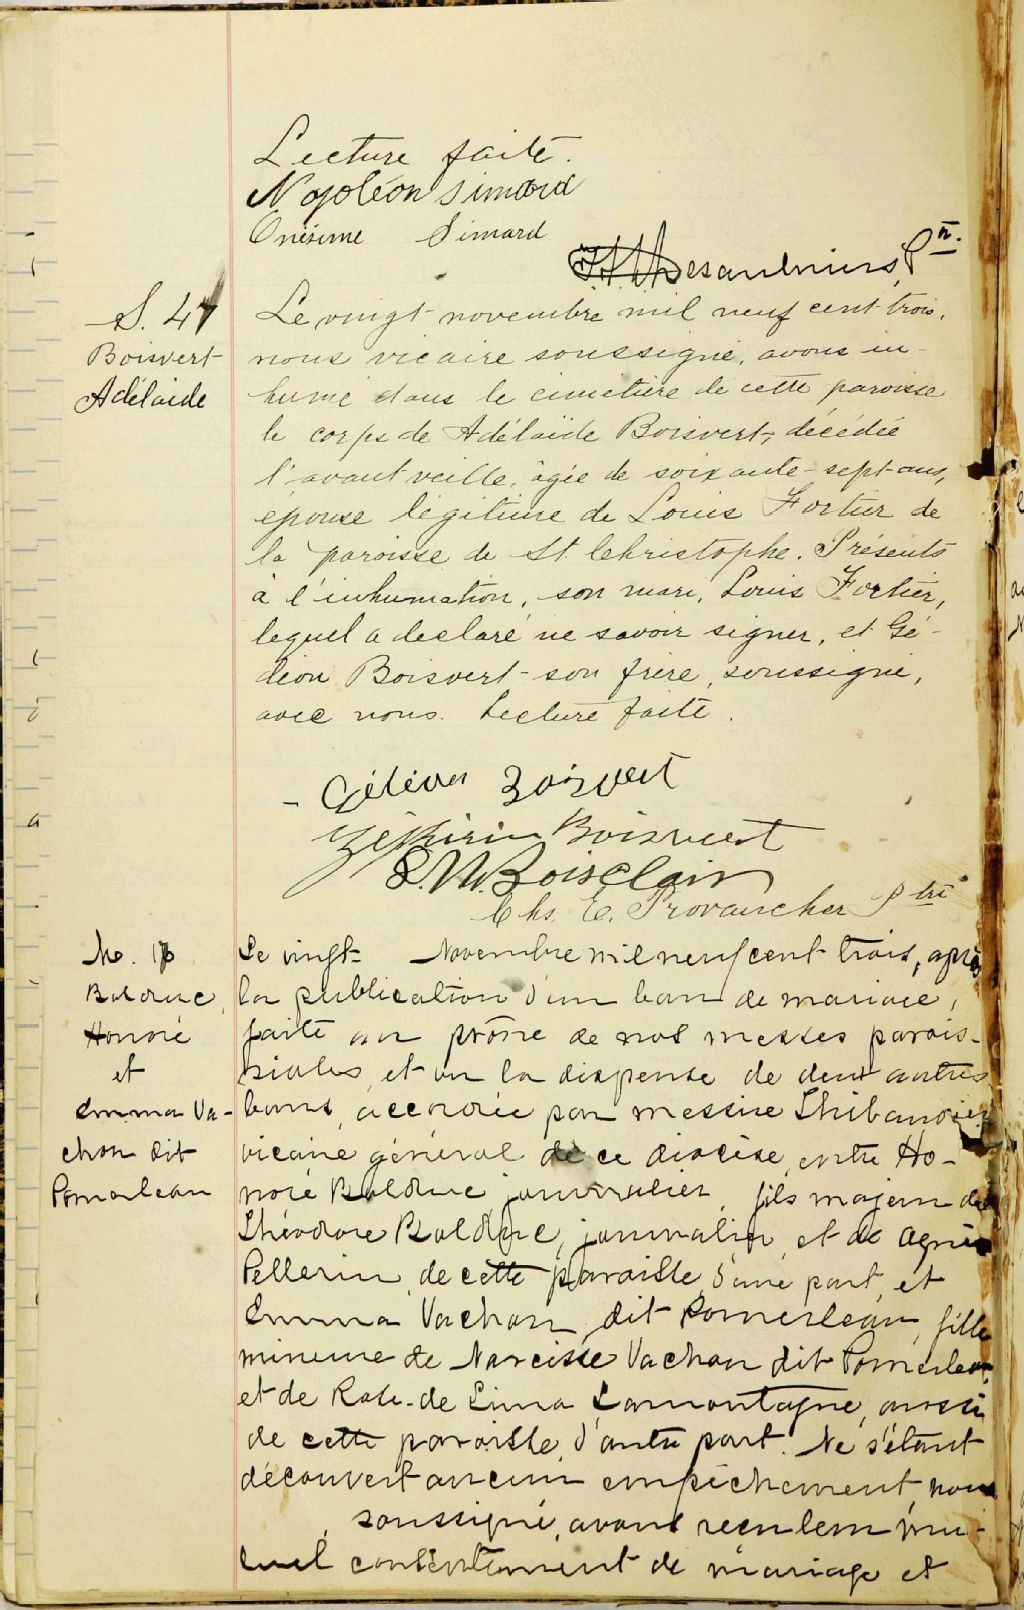 Lecture faite.
Napoléon Simard
Onésime Simard
Desaulniers, Ptr.
S. 47
Boisvert
Adélaide
Le vingt novembre mil neuf cent trois,
nous vicaire soussigné, avons in-
humé dans le cimetière de cette paroisse
le corps de Adélaïde Boisvert, décédée
l'avant veille, âgée de soixante-sept-ans,
épouse légitime de Louis Fortier de
la paroisse de St. Christophe. Présents
à l'inhumation, son mari, Louis Fortier,
lequel a declaré ne savoir signer, et Gé-
déon Boisvert son frère, soussigné,
avec nous. Lecture faite.
Gédéon Boisvert
Zéphirin Boisvert
Boisclair
Chs. E. Provancher Ptre
M. 16
Bolduc,
Honoré
et
Emma Va-
chon dit
Pomerleau
Le vingt Novembre mil neuf cent trois, après
la publication d'un ban de mariage,
faite au prône de nos messes parois-
siales, et vu la dispense de deux autres
bans, accordée par messire Thibaudier
vicaire général de ce diocèse, entre Ho-
noré Bolduc, journalier, fils majeur de
Théodore Bolduc, journalier, et de Agnès
Pellerin, de cette paroisse d'une part, et
Emma Vachon dit Pomerleau, fille
mineure de Narcisse Vachon dit Pomerleau,
et de Rose-de Lima Lamontagne, aussi
de cette paroisse, d'autre part. Ne s'étant
découvert aucun empêchement, nous
soussigné, avons reçu leur mu-
tuel consentement de mariage et